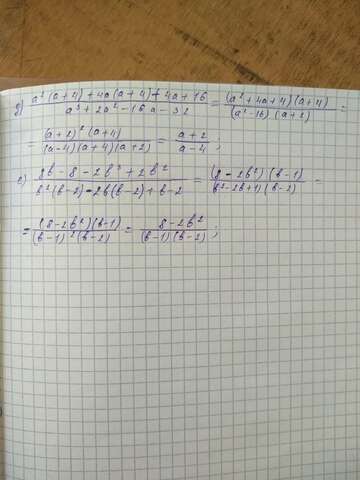 д) (a²(a+4)+4a(a+4)+4a+16)/(a³+2a²-16a-32) = ((a²+4a+4)(a+4))/((a²-16)(a+2)) =
= ((a+2)²(a+4))/((a-4)(a+4)(a+2)) = (a+2)/(a-4);
е) (8b-8-2b³+2b²)/(b²(b-2)-2b(b-2)+b-2) = ((8-2b²)(b-1))/((b²-2b+1)(b-2)) =
= ((8-2b²)(b-1))/((b-1)²(b-2)) = (8-2b²)/((b-1)(b-2));